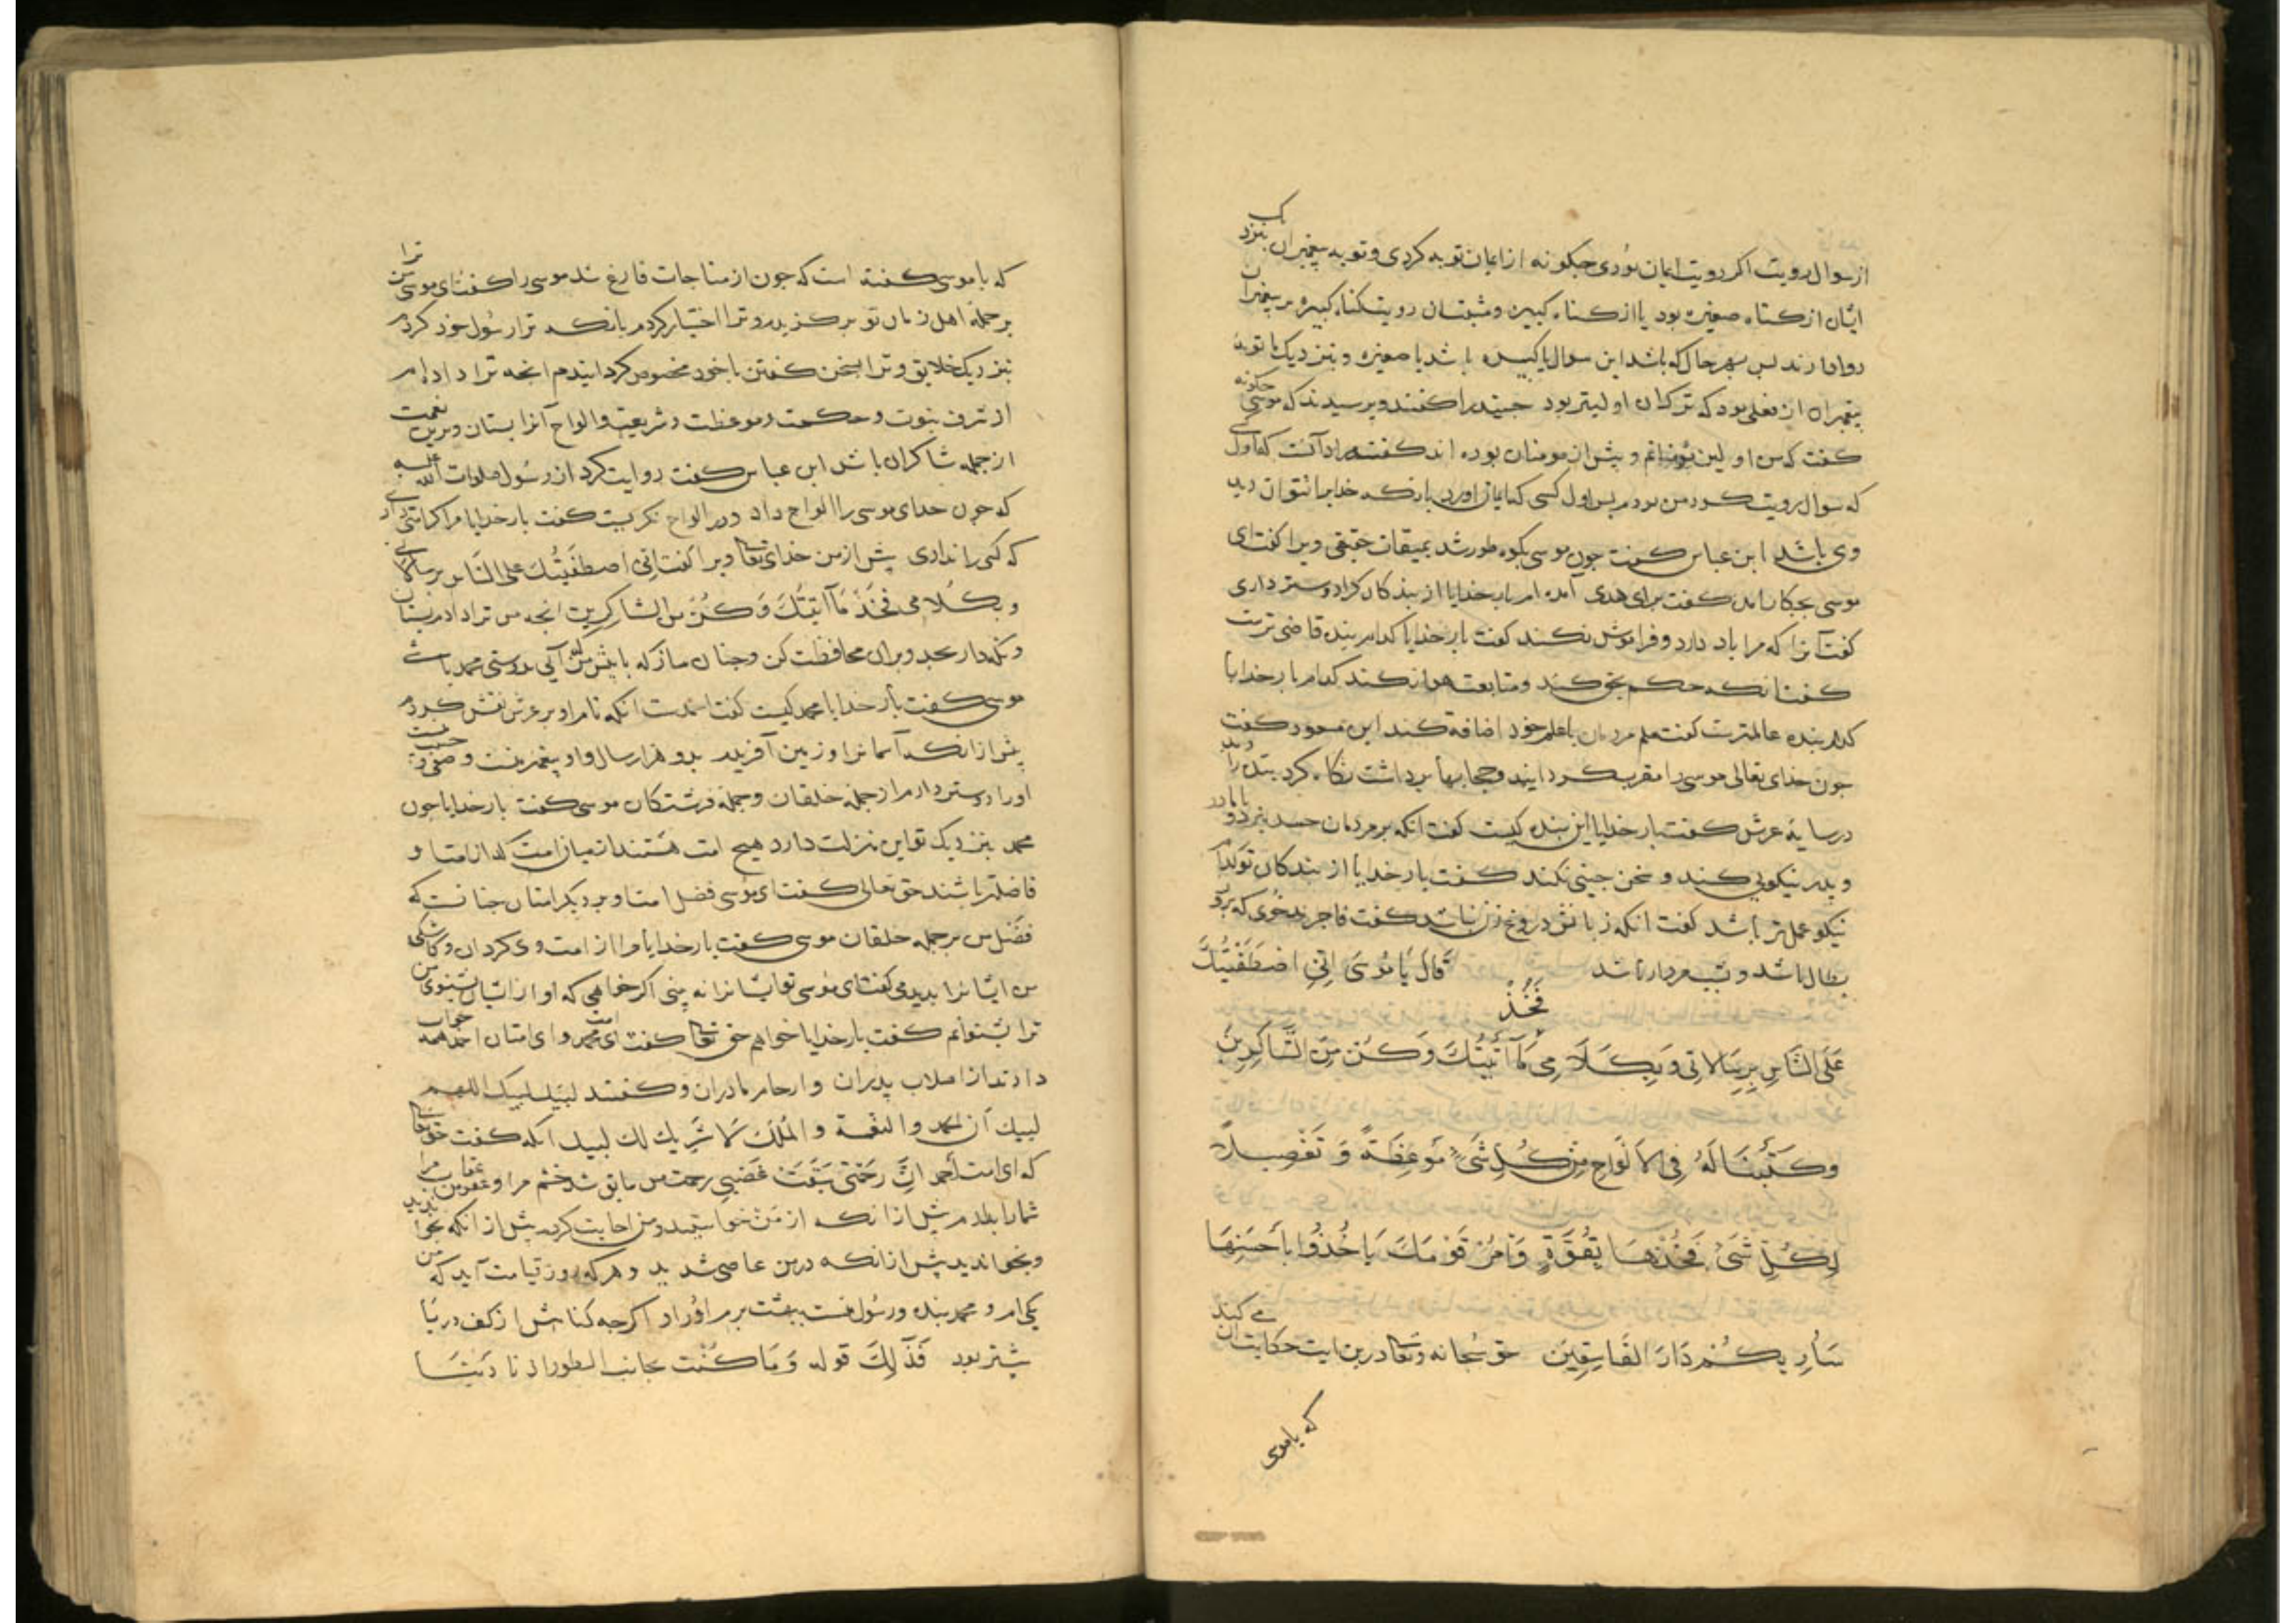 از سوال رویت اگر رویت ایمان بودی چگونه از ایمان توبه کردی و توبه پیغمبران بنزدیک
ایشان از گناه صغیره بود یا از گناه کبیره و مثبتان رویت گناه کبیره بر پیغمبران
روا ندارند پس بهر حال که باشد این سوال یا کبیره باشد یا صغیره و بنزدیک ما توبهٔ
پیغمبران از فعلی بود که ترک آن اولیتر بود جنید را گفتند و پرسیدند که موسی چگونه
گفت که من اولین مؤمنانم و پیش از مومنان بوده اند گفت مراد آنست که اول کسی
که سوال رویت کرد من بودم پس اول کسی که ایمان اورد بانکه خدایرا نتوان دید
وی باشد ابن عباس گفت چون موسی بکوه طور شد بمیقات حقیقی ویرا گفت ای
موسی بچکار امدی گفت برای هدی آمده ام بار خدایا از بندگان کرا دوستر داری
گفت آنرا که مرا یاد دارد و فراموش نکند گفت بار خدایا کدام بنده قاضی ترست
گفت انکه حکم بحق کند و متابعت هوا نکند کدام بار خدایا
کدام بنده عالمترست گفت علم مردمان با علم خود اضافه کند ابن مسعود گفت
چون خدای تعالی موسی را مقرب گردانید و حجابها برداشت نگاه کرد بندهٔ را دید
در سایهٔ عرش گفت بار خدایا این بنده کیست گفت انکه بر مردمان حسد نبرد و با مادر
و پدر نیکویی کند و سخن چینی نکند گفت بار خدایا از بندگان تو کدام
نیکو عمل تر باشد گفت انکه زبانش دروغ زن نباشد گفت فاجر بدخوی که بروز
بطال باشد و بشب مردار باشد قَالَ یَا مُوسَی اِنِّی اصْطَفَیْتُكَ
عَلَی النَّاسِ بِرِسَالَاتِی وَبِکَلَامِی فَخُذْ مَا آتَیْتُكَ وَکُنْ مِنَ الشَّاکِرِینَ
وَکَتَبْنَا لَهُ فِی الْاَلْوَاحِ مِنْ کُلِّ شَیْءٍ مَوْعِظَةً وَتَفْصِیلًا
لِکُلِّ شَیْءٍ فَخُذْهَا بِقُوَّةٍ وَأْمُرْ قَوْمَكَ یَاْخُذُوا بِأَحْسَنِهَا
سَأُرِیکُمْ دَارَ الْفَاسِقِینَ حق سبحانه وتعالی درین ایت حکایت ان می کند
که با موسی
که با موسی گفته است که چون از مناجات فارغ شد موسی را گفت ای موسی من ترا
بر جمله اهل زمان تو برگزیدم و ترا اختیار کردم بانکه ترا رسول خود کردم
بنزدیک خلایق و ترا بسخن گفتن با خود مخصوص گردانیدم انچه ترا داده ام
از شرف نبوت و حکمت و موعظت و شریعت و الواح آنرا بستان و برین نعمت
از جمله شاکران باش ابن عباس گفت روایت کرد از رسول صلوات الله علیه
که چون خدای موسی را الواح داد در الواح نگریست گفت بار خدایا مرا کرامتی دادی
که کسی را ندادی پیش از من خدای تعالی ویرا گفت اِنِّی اصطَفَیْتُكَ عَلَی النَّاسِ برسالاتی
وبکلامی فَخُذْ مَا آتَیْتُكَ وَکُنْ مِنَ الشاکِرِین انچه من ترا دادم بستان
و نگه دار بجد و بران محافظت کن و چنان ساز که با پیش من آیی بدوستی محمد باشی
موسی گفت بار خدایا محمد کیست گفت احمدست انکه نام او بر عرش نقش کردم
پیش از انکه آسمانرا و زمین آفریدم بدو هزار سال و او پیغمبر منست و صفی و حبیب منست
او را دوستر دارم از جمله خلقان و جمله فرشتگان موسی گفت بار خدایا چون
محمد بنزدیک تو این منزلت دارد هیچ امت هستند از میان امت که از امت او
فاضلتر باشند حق تعالی گفت ای موسی فضل امت او بر دیگر امتان چنانست که
فضل من بر جمله خلقان موسی گفت بار خدایا مرا از امت وی گردان و کاشکی
من ایشانرا بدیدمی گفت ای موسی تو ایشانرا نه بینی اگر خواهی که اواز ایشان بشنوی من
ترا بشنوانم گفت بار خدایا خواهم حق تعالی گفت ای امت محمد و ای امتان احمد همه جواب
دادند از اصلاب پدران و ارحام مادران و گفتند لبیک لبیک اللهم
لبیك اَن الحمد والنعمة والملك لَا شَرِیك لك لبیك انکه گفت حق تعالی
که ای امت احمد اِنَّ رَحْمَتی سَبَقَتْ غَضَبی رحمت من سابق شد خشم مرا و عفو من عقاب مرا
شما را بدادم پیش از انکه از من خواستید و من اجابت کردم پیش از انکه بخوانید
و بخواندید پیش از انکه در من عاصی شدید و هر که روز قیامت آید که من
یکی ام و محمد بنده و رسول منست ببهشت برم او را و اگرچه گناهش از کف دریا
بیشتر بود فَذَلِكَ قوله وَمَا کُنْتَ بجانب الطور اذ نادَیْنَا